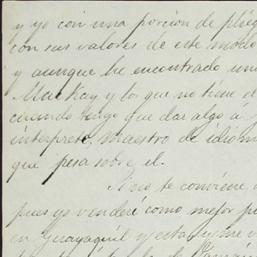 y yo con una porcion de plieg
con sus valores de este modo
y aunque he encontrado un
MacKay y los que no tiene d
cuando tengo que dar algo á
interprete, maestro de idiom
que pesa sobre el.
Si no te conviene,
pues yo venderé como mejor pu
en Guayaquil y estoy me v